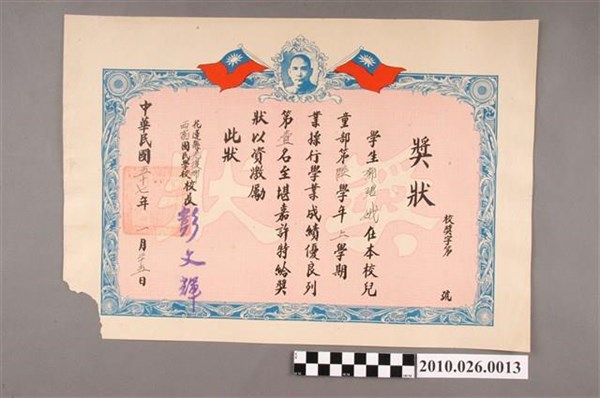 獎狀
校獎字第 號
學生 在本校兒
童部第陸學年上學期
業操行學業成績優良列
第壹名至堪嘉許特給獎
狀以資激勵
此狀
花蓮縣
國民學校校長彭文輝
中華民國 十七年一月 五日
獎狀
2010.026.0013